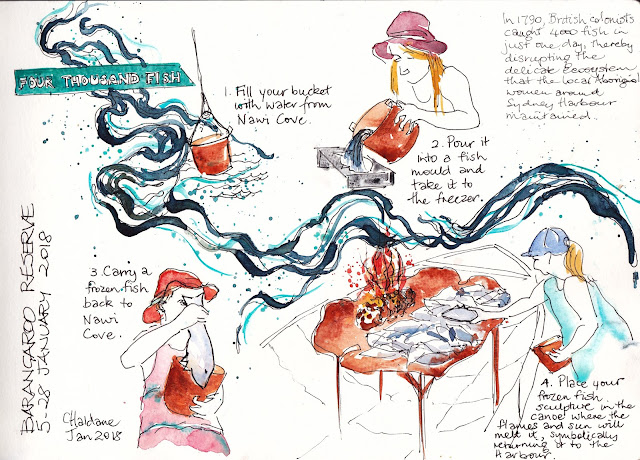 FOUR THOUSAND FISH
In 1790, British colonists
caught 4000 fish in
just one day, thereby
disrupting the
delicate ecosystem
that the local Aboriginal
women around
Sydney Harbour
maintained.
1. Fill your bucket
with water from
Nawi Cove.
2. Pour it
into a fish
mould and
take it to
the freezer.
3. Carry a
frozen fish
back to
Nawi
Cove.
4. Place your
frozen fish
sculpture in the
canoe where the
flames and sun will
melt it, symbolically
returning it to the
Harbour.
BARANGAROO RESERVE
5-28 JANUARY 2018
CHaldane
Jan 2018